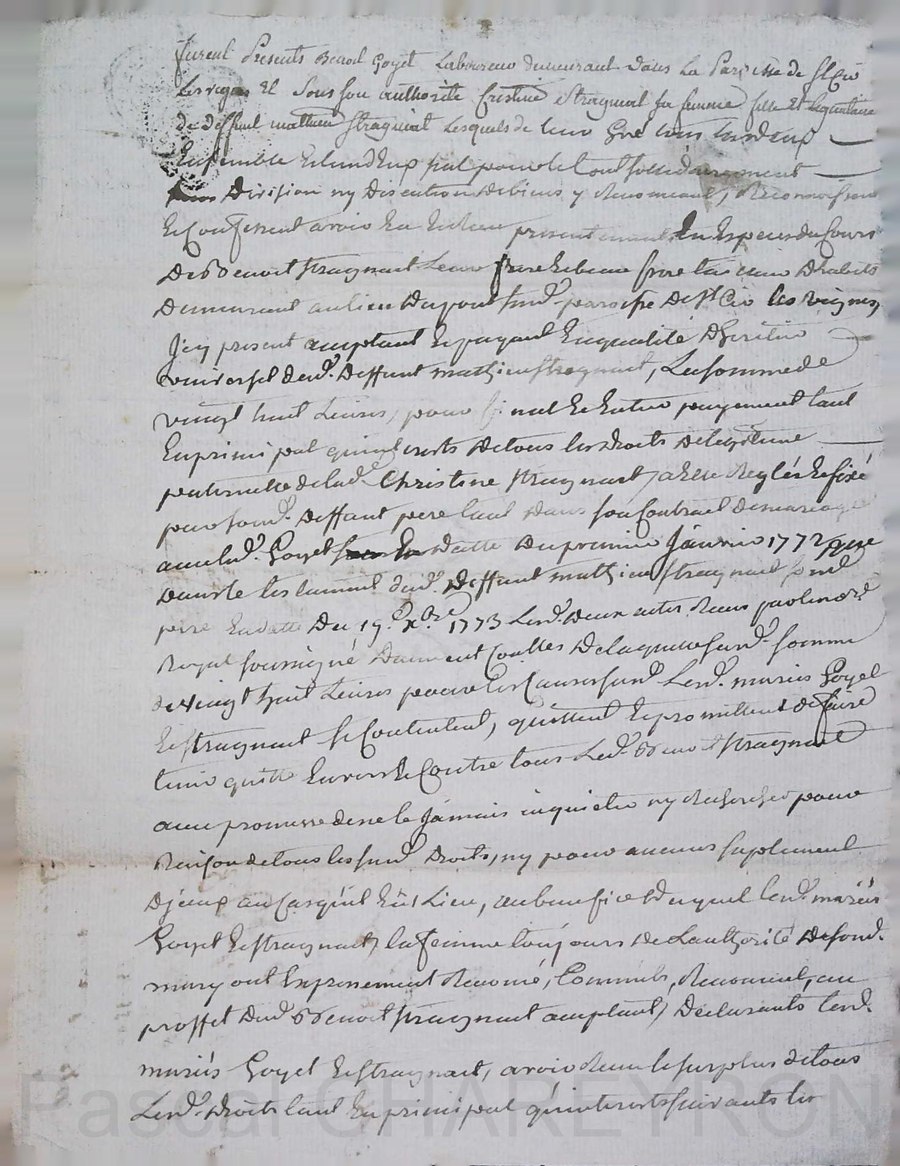 furent Presents Benoit Goyet Laboureur demeurant dans La Paroisse de St Cir
Les vignes Et Sous son authorité Cristine Stragniat sa femme fille Et Legitimaire
de deffunt mathieu Stragniat Lesquels de leur Gré tous les deux
Ensemble Et lund Eux seul pour le tout solidairement
Division ny Discution de biens y Renoncant, Reconnoissent
Et Confessent avoir Eu Et Receu presentement En Especes du Cours
De Benoit Stragniat Leur frere Et beau frere
Demeurant au lieu Dupont paroisse De St Cir les vignes
Icy present acceptant Et payant En qualité D'heritier
universel dud. Deffunt mathieu Stragniat, La somme de
vingt huit Livres, pour final Et Entier payement tant
En principal qu'interets De tous les droits De legitime
paternelle de lad. Christine Stragniat a Elle Reglés Et fixé
par sond. Deffunt pere tant Dans son Contrat de mariage
avec led. Goyet En datte Du premier Janvier 1772 que
Dans le testament dud. Deffunt mathieu Stragniat sond.
pere En datte Du 19e Xbre 1773 Lesd. Deux actes Reçus par le not.re
Royal soussigné Duement Collés De laquelle susd. somme
de vingt huit Livres pour Les Causes susd. Lesd. mariés Goyet
Et Stragniat se Contentent, quittent Et promettent de faire
tenir quitte Envers Et Contre tous Led. Benoit Stragniat
avec promesse de ne le Jamais inquieter ny Rechercher pour
Raison de tous les susd. Droits, ny pour aucuns suplement
D'jceux au Cas qu'il y Eut Lieu, au benefice Duquel lesd. mariés
Goyet Et Stragniat, la femme toujours De L'authorité De sond.
mary ont Expressement Renoncé, Comme ils Renoncent, au
proffit Dud. Benoit Stragniat acceptant, Declarants lesd.
mariés Goyet Et Stragniat, avoir Receu le surplus de tous
Lesd. Droits tant En principal qu'interets suivants les
Pascal CHAREYRON